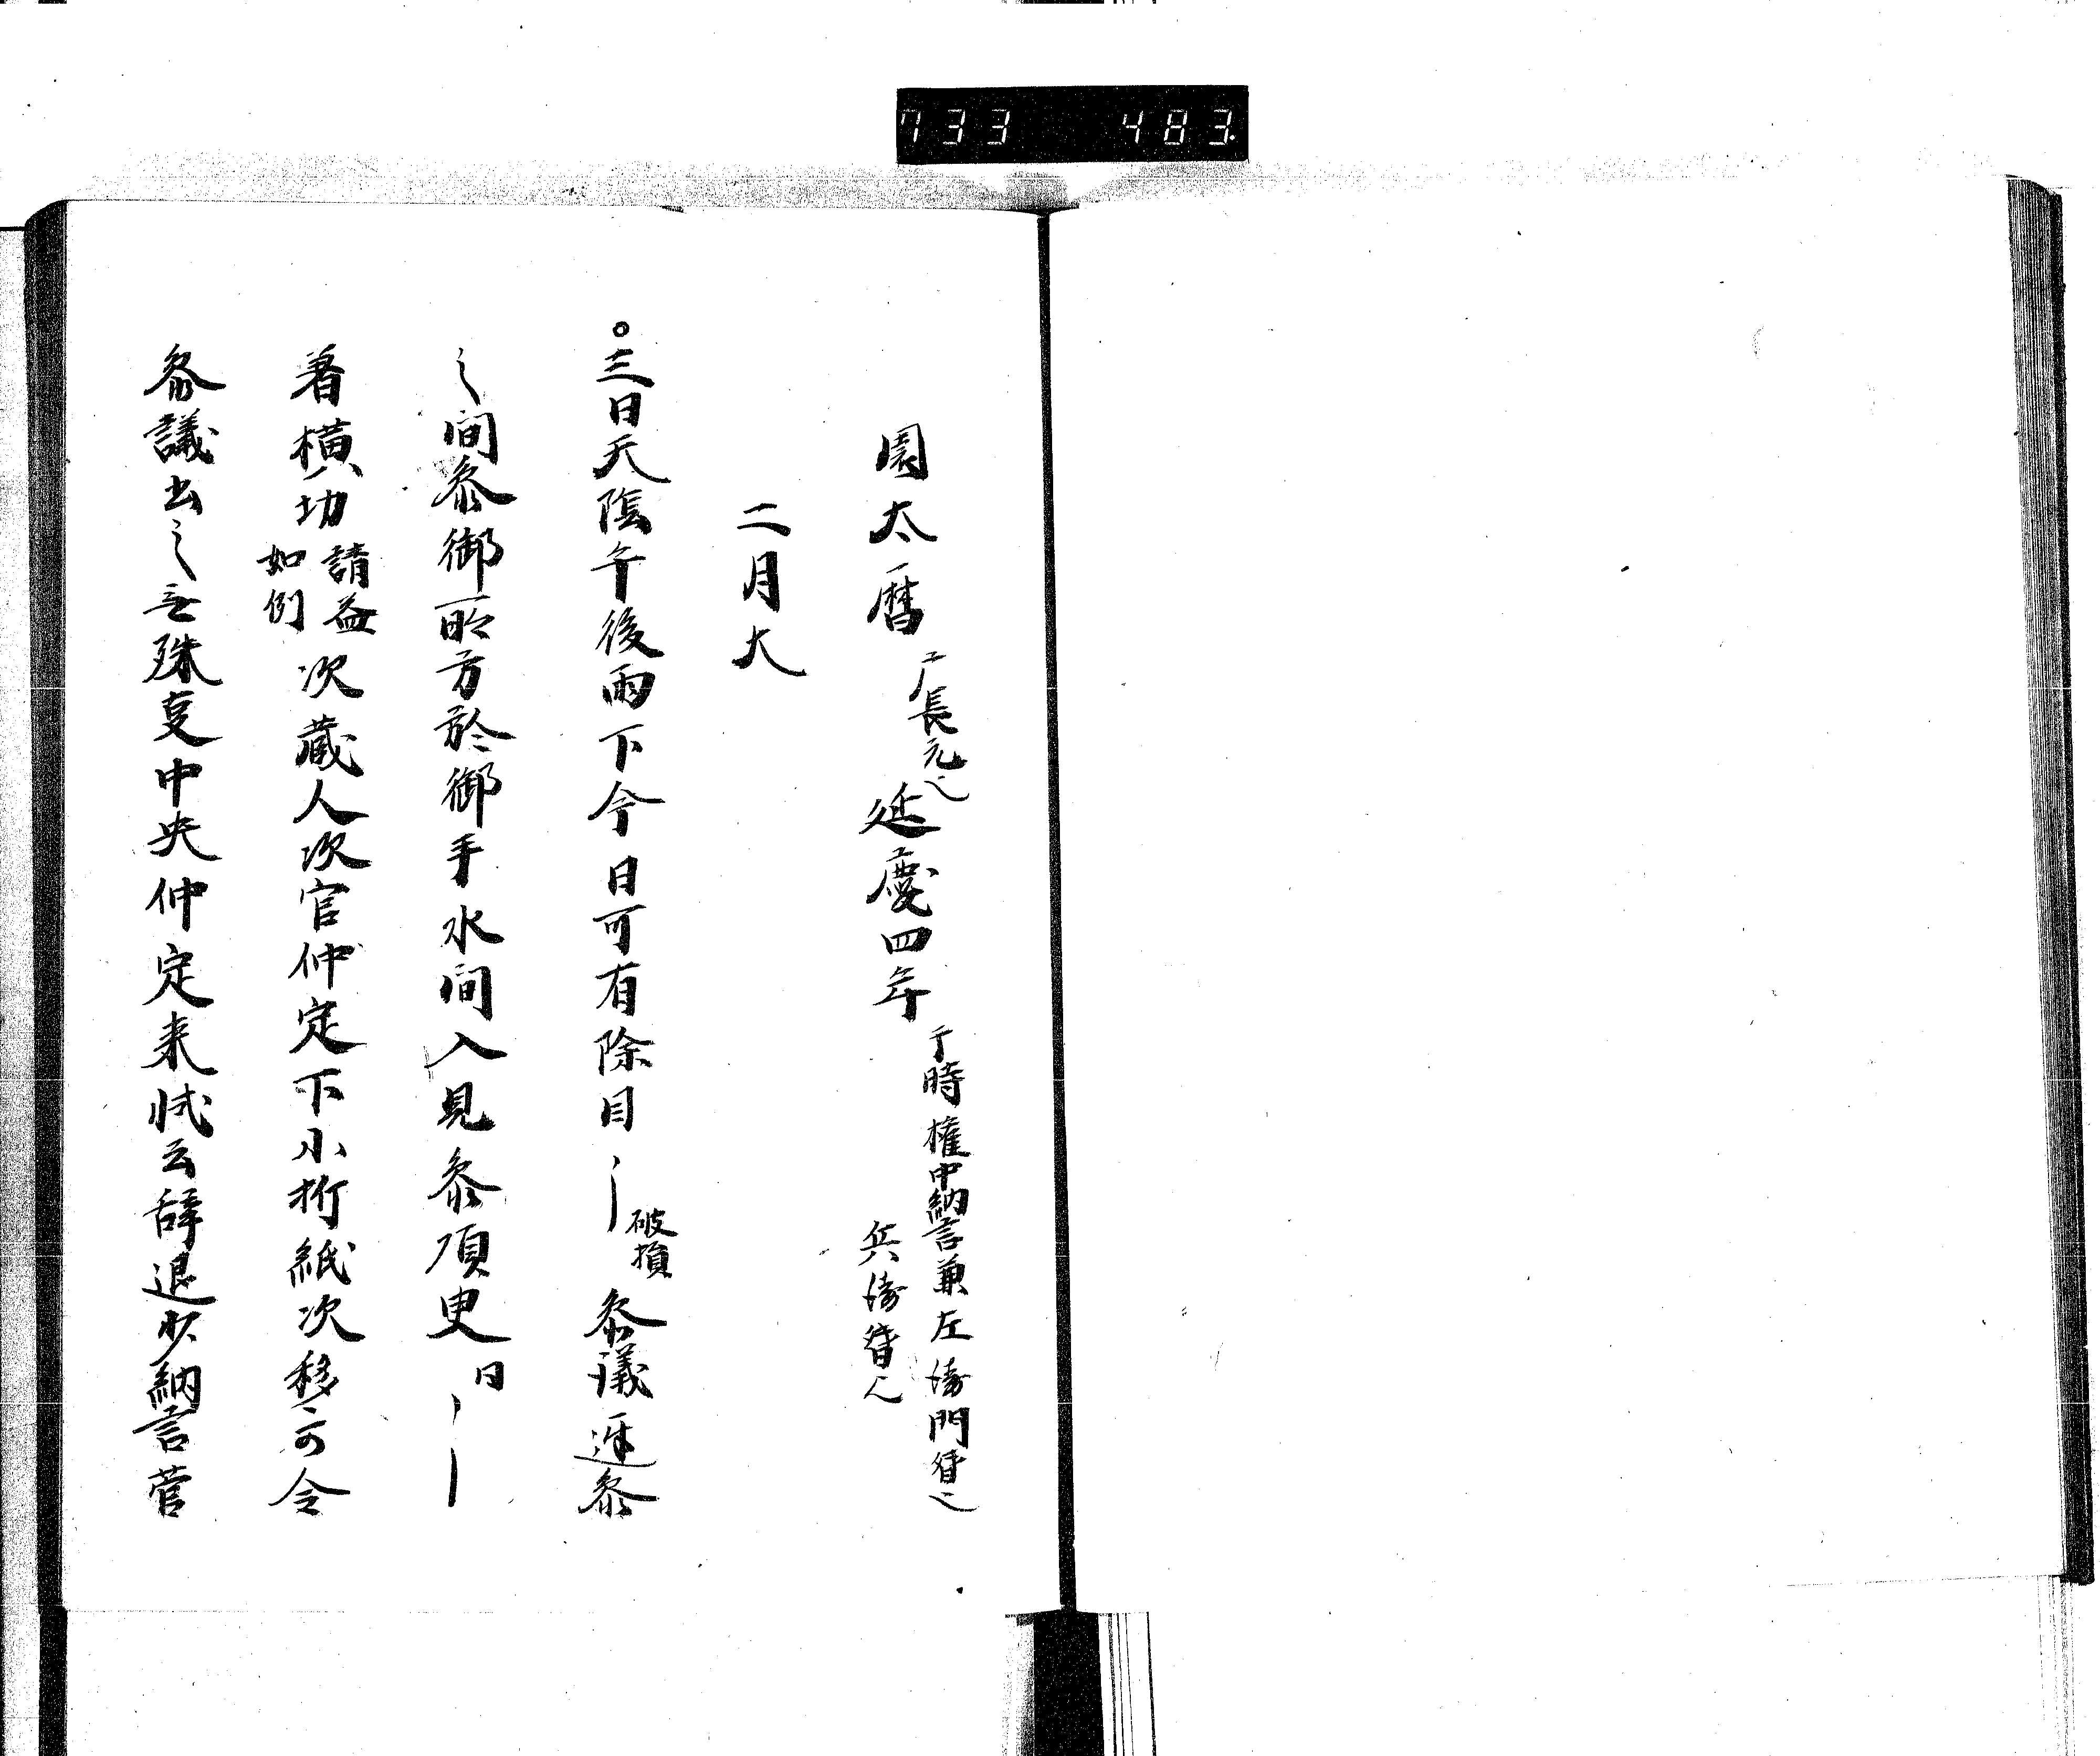 733 483
園太暦 延慶四年
广長元
于時権中納言兼左衛門督
兵衛督
二月大
三日天陰午後雨下今日可有除目
破損
参議遅参
之間参御所方於御手水間入見参須臾
日
着横切
請益
如例
次蔵人次官仲定下小折紙次移 令
参議書之無殊事中央仲定来 云辞退少納言菅